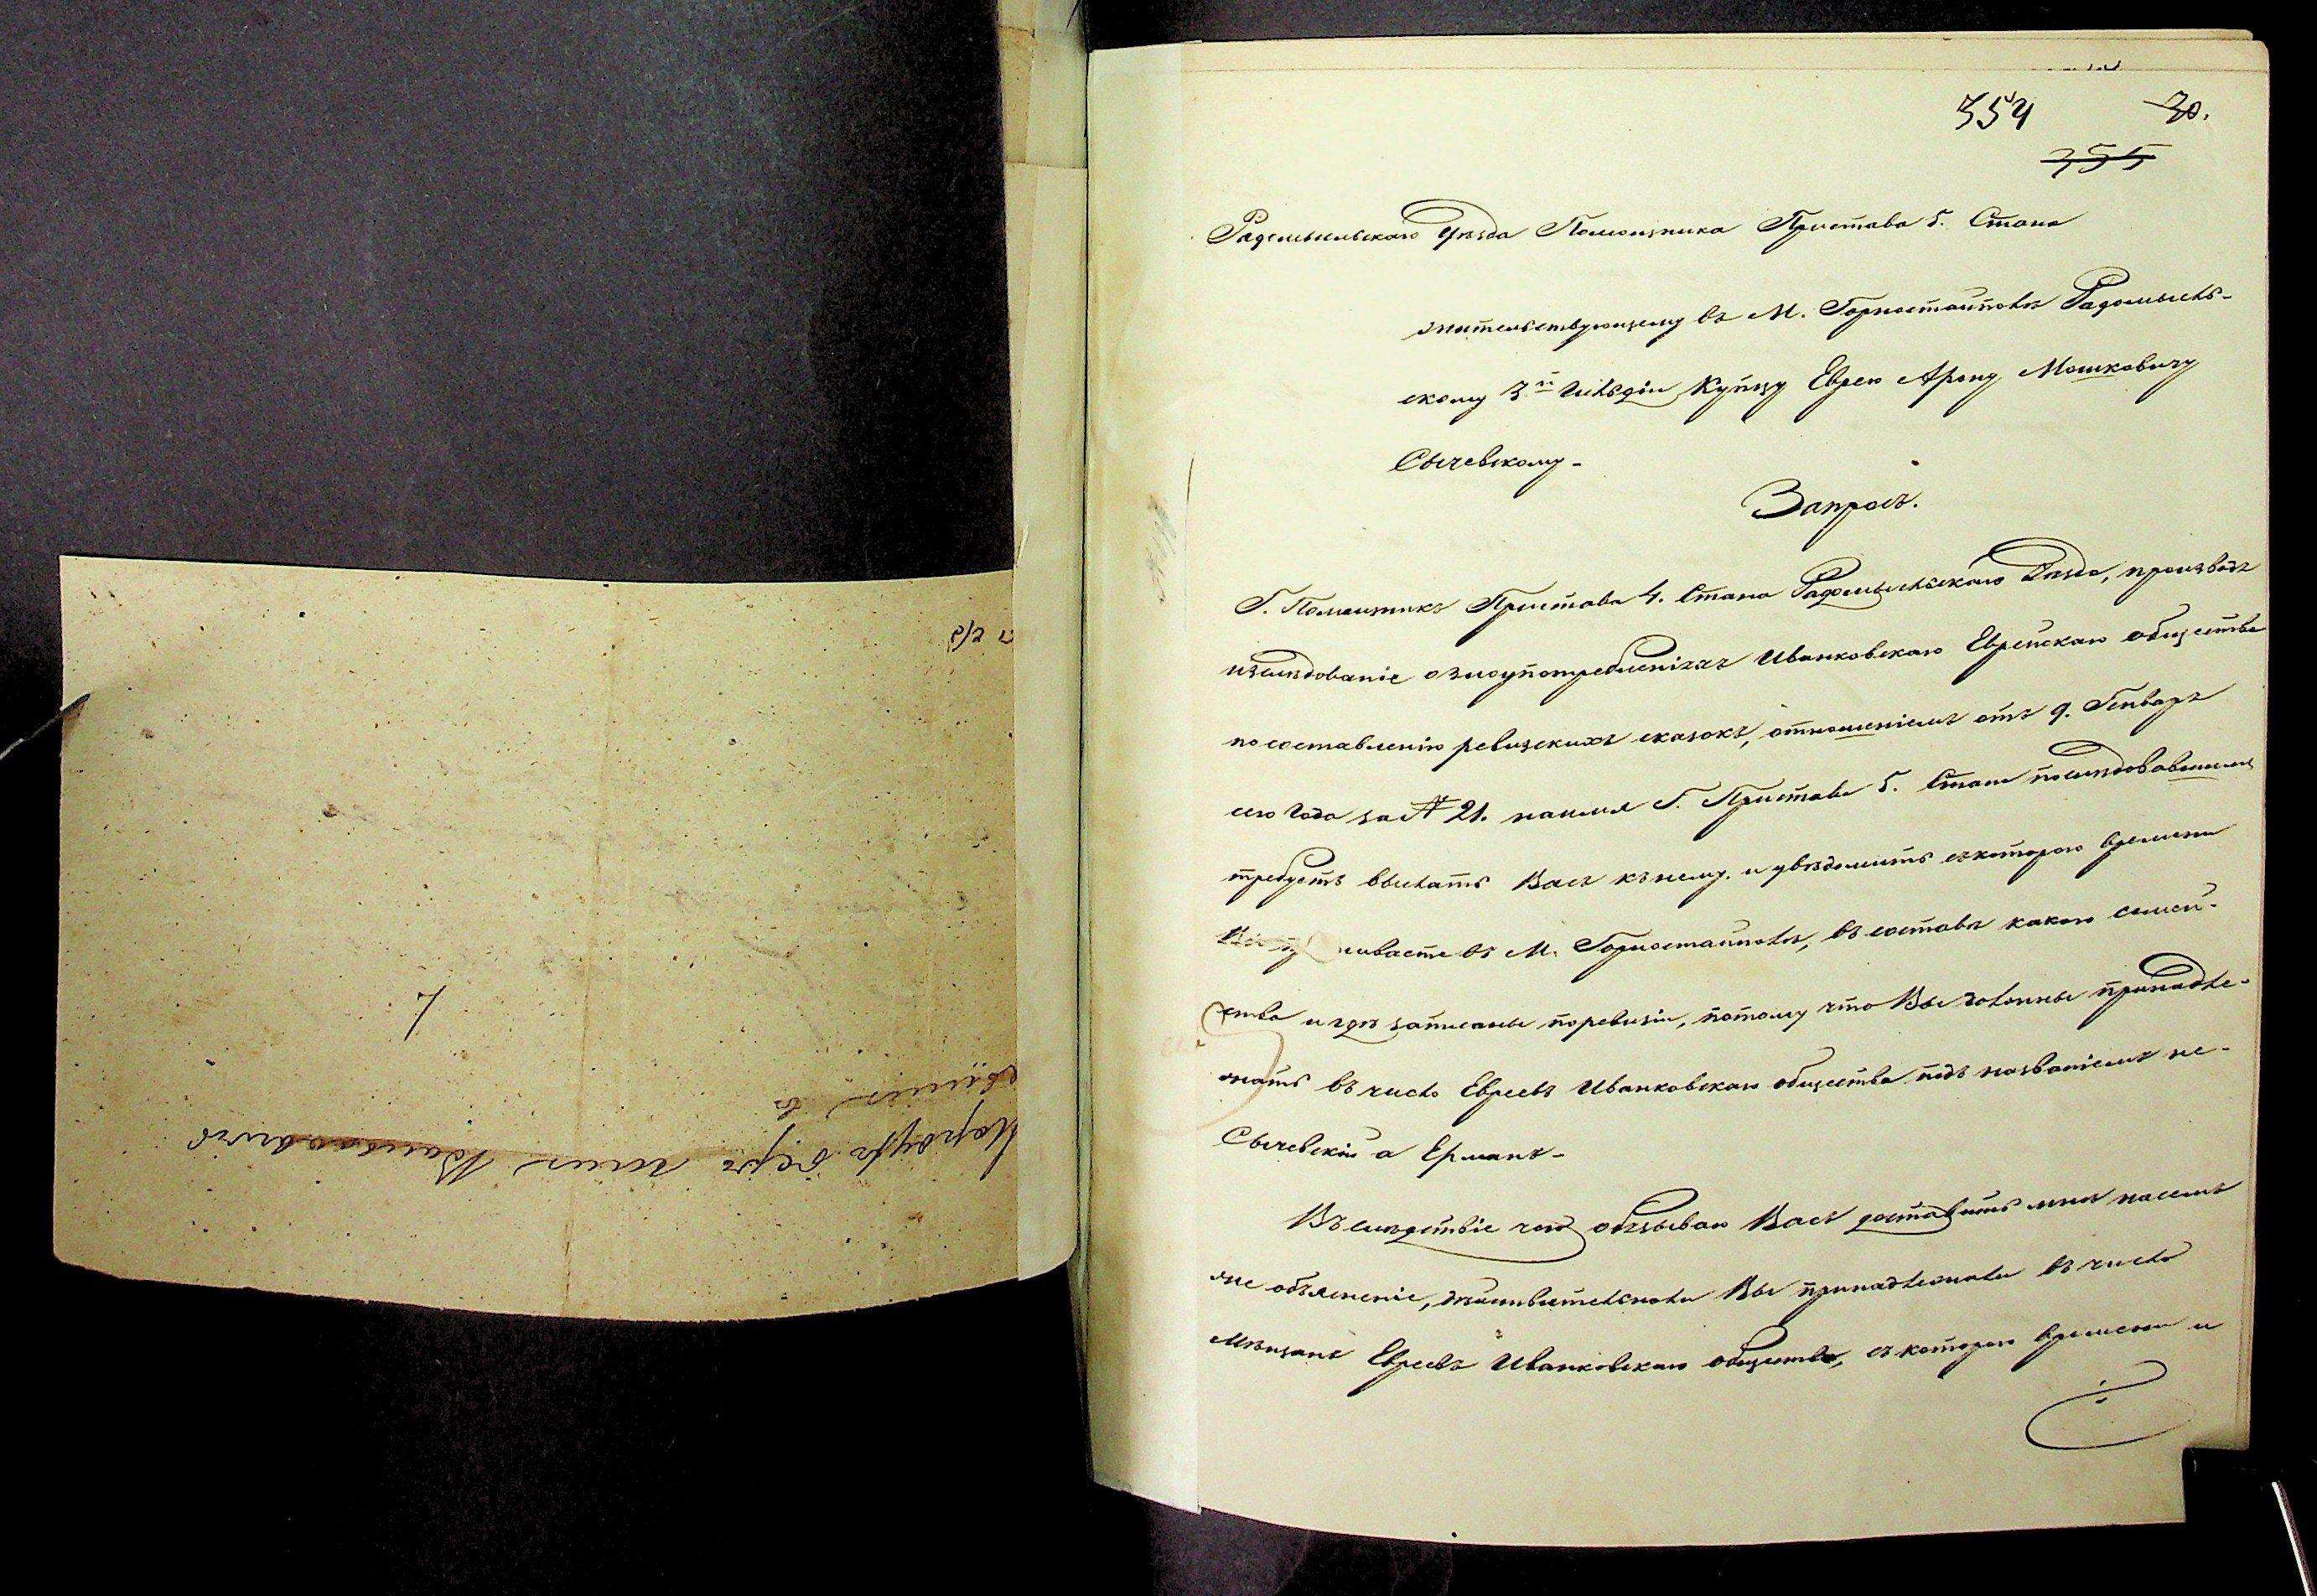 354 30.
355
Радомысльскаго Уѣзда Помощника Пристава 5. Стана
жительствующему въ М. Горностайполѣ Радомысль-
скому 3й Гильдіи Купцу Еврею Арону Мошковичу
Сычевскому-
Запросъ.
Г. Помощникъ Пристава 4. Стана Радомысльскаго Уѣзда, производя
изслѣдованіе озлоупотребленіяхъ Иванковскаго Еврейскаго общества
посоставленію ревизскихъ сказокъ, отношеніемъ отъ 9. Генваря
сего Года за № 21. наимя Г. Пристава 5. Стана послѣдовавшимъ
требуетъ выслать Васъ кънему и увѣдомить скотораго времени
живаете въ М. Горностайполѣ, въ составѣ какого семей-
ства игдѣ записаны поревизіи, потому что Вы должны принадле-
жать въ число Евреевъ Иванковскаго общества подъ названіемъ не-
Сычевскій а Ерманъ-
Въслѣдствіе чего обязываю Васъ доставить мнѣ насемъ
же объясненіе, дѣйствительноли Вы принадлежали въ число
Мѣщанъ Евреевъ Иванковскаго общества, съ котораго времени и